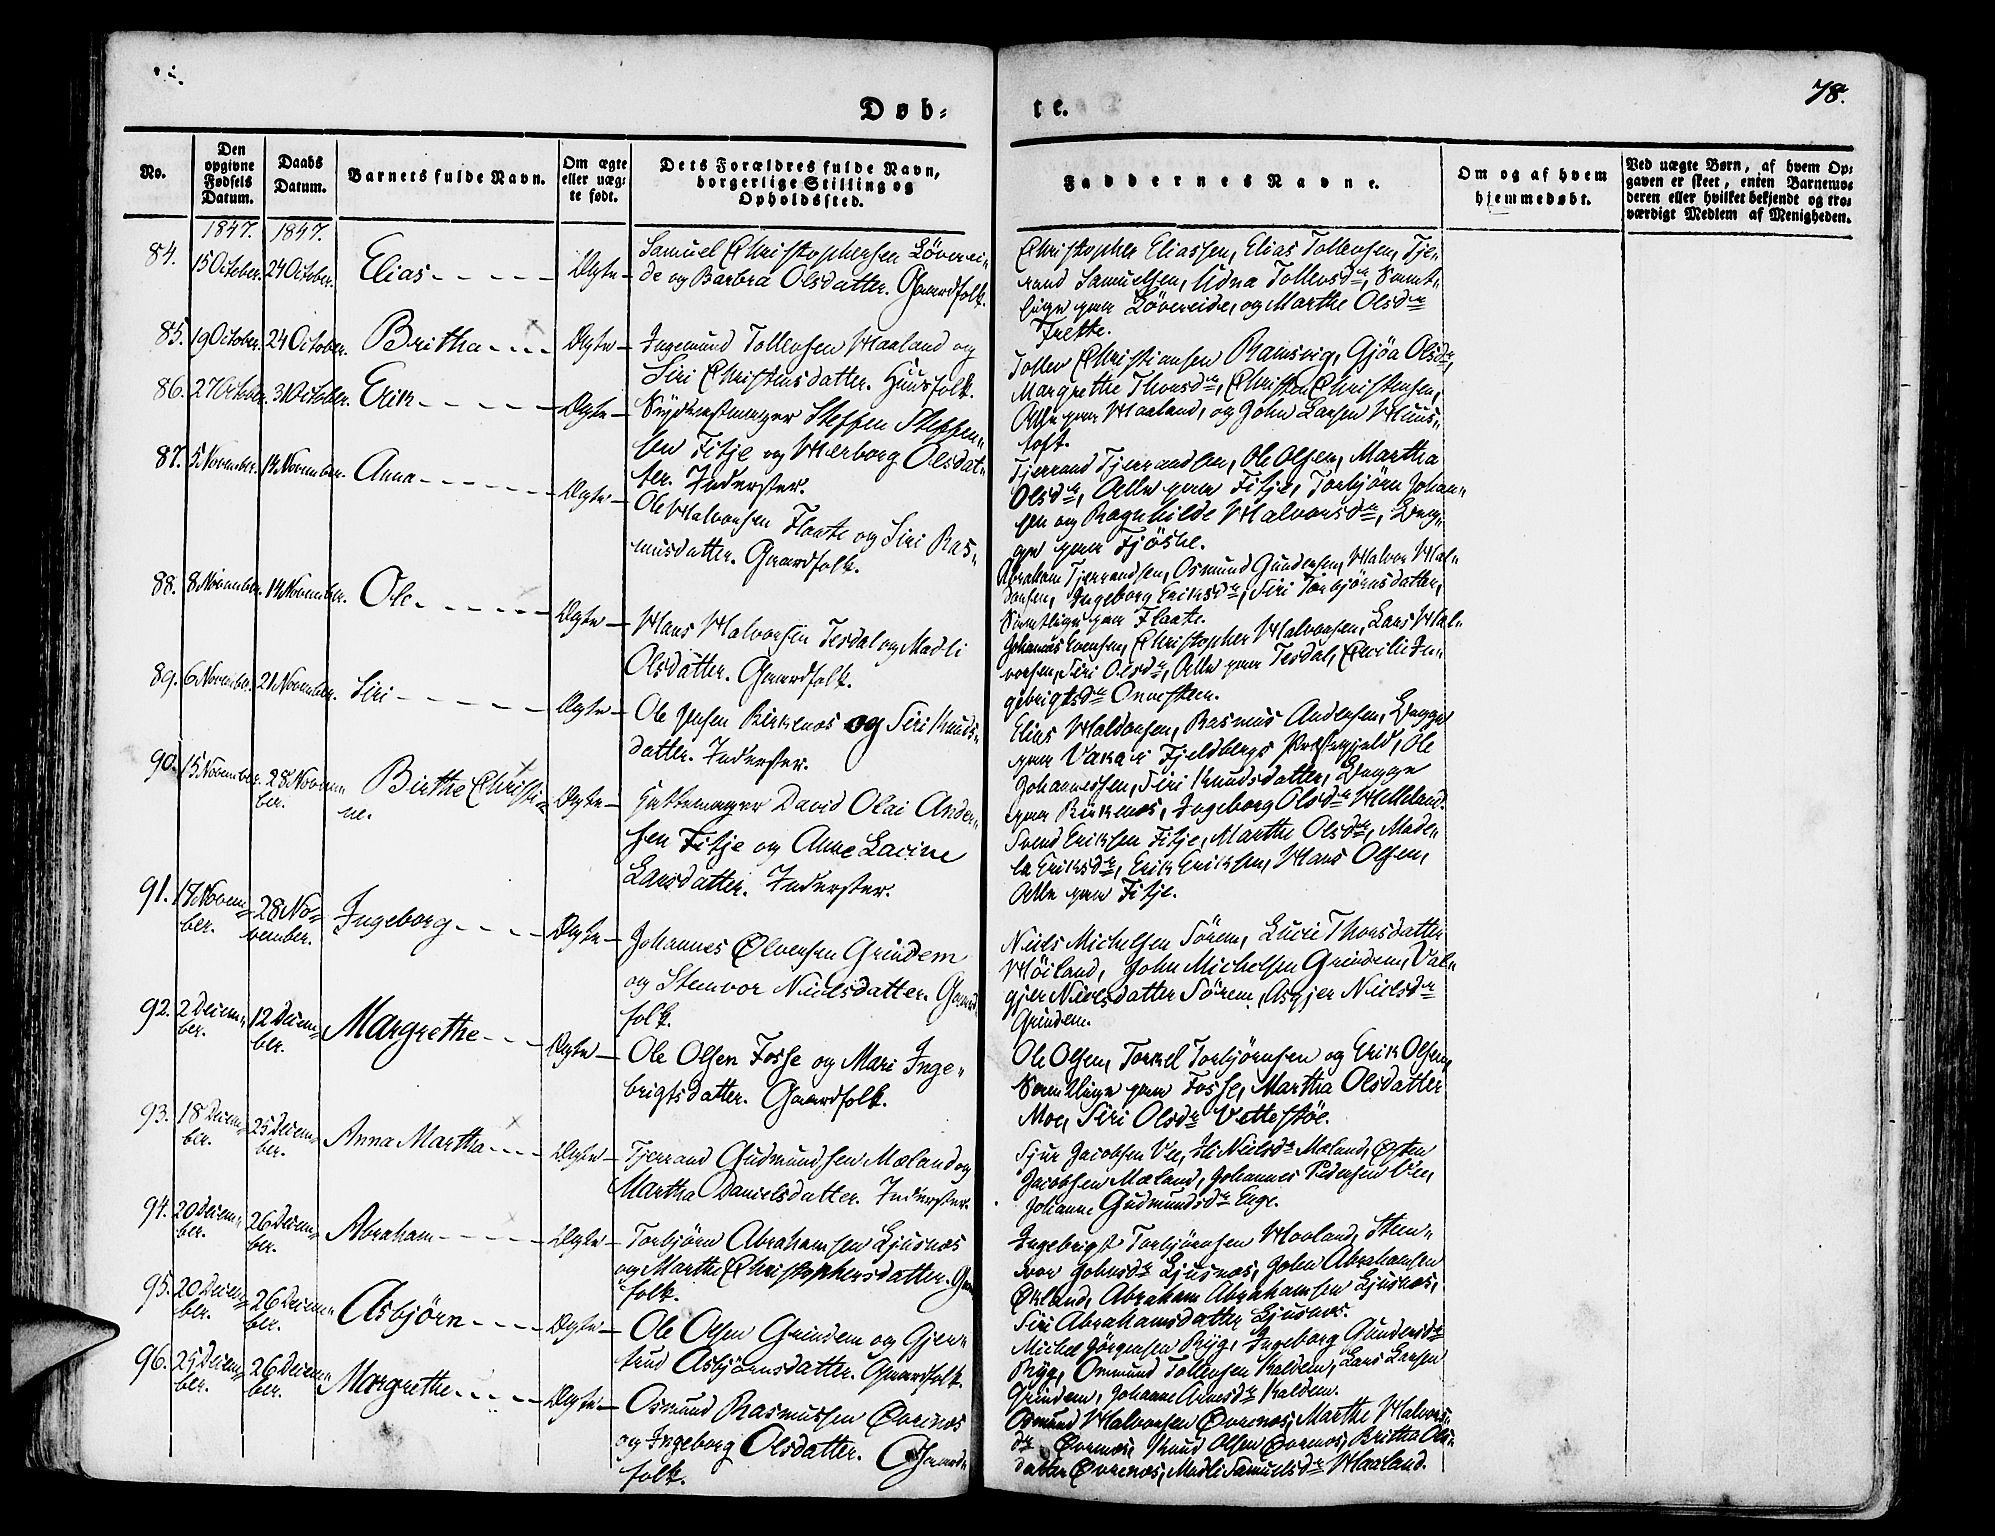 78.
Døb-
te.
No.
Den opgivne Fødsels Datum.
Daabs Datum.
Barnets fulde Navn.
Om ægte eller uæg-te født.
Dets Forældres fulde Navn, borgerlige Stilling og Opholdssted.
Faddernes Navne.
Om og af hvem hjemmedøbt.
Ved uægte Børn, af hvem Op-gaven er skeet, enten Barnemo-deren eller hvilket bekjendt og tro-værdigt Medlem af Menigheden.
1847. 1847.
84. 15 October. 24 October. Elias Ægte
Samuel Christophersen Løverei-
de og Barbra Olsdatter. Gaardfolk.
Christopher Eliassen, Elias Tollevsen, Tje-
rand Samuelsen, Udna Tollevsdr, Samt-
lige paa Løvereide, og Marthe Olsdr
Frette.
85. 19 October. 24 October. Britha Ægte
Ingemund Tollevsen Haaland og
Siri Christensdatter. Huusfolk.
Tollev Christiansen Ramsvig, Gjøa Olsdr,
Margrethe Thorsdr, Christen Christensen,
Alle paa Haaland, og John Larsen Huus-
toft.
86. 27 October. 31 October. Erik Ægte
Steffen Steffen-
sen Fitje og Herborg Olsdat-
ter. Inderster.
Tjerrand Tjerrandsen, Ole Olsen, Martha
Olsdr, Alle paa Fitje, Torbjørn Johan-
sen og Ragnhilde Halvorsdr, Beg-
ge paa Fjøsne.
87. 5 November. 14 November. Anna Ægte
Ole Halvorsen Flaate og Siri Ras-
musdatter. Gaardfolk.
Abraham Tjerrandsen, Osmund Gundersen, Halvor Hal-
vorsen, Ingeborg Eriksdr, Siri Torbjørnsdatter,
Samtlige paa Flaate.
88. 8 November. 14 November. Ole Ægte
Hans Halvorsen Tesdal og Madli
Olsdatter. Gaardfolk.
Johannes Evensen, Christopher Halvorsen, Lars Hal-
vorsen, Siri Olsdr, Alle paa Tesdal, Cecilie In-
gebrigtsdr Ornesteen.
89. 6 November. 21 November. Siri Ægte
Ole Jensen Birkenæs og Siri Knuds-
datter. Inderster.
Elias Haldorsen, Rasmus Andersen, Begge
paa Vaka i Fjeldbergs Præstegjeld, Ole
Johannessen, Siri Knudsdatter, Begge
paa Birkenæs, Ingeborg Olsdr Helleland.
90. 15 November. 28 Novem-
ber. Birthe Christi-
ne. Ægte
David Olai Ander-
sen Fitje og Anne Lavine
Larsdatter. Inderster.
Svend Eriksen Fitje, Marthe Olsdr, Made-
la Eriksdr, Erik Eriksen, Hans Olsen,
Alle paa Fitje.
91. 17 Novem-
ber. 28 No-
vember. Ingeborg Ægte
Johannes Ølvensen Grindem
og Steenvor Nielsdatter. Gaard-
folk.
Niels Michelsen Sørem, Lucie Thorsdatter
Høiland, John Michelsen Grindem, Val-
gjer Nielsdatter Sørem, Asgjer Nielsdr
Grindem.
92. 2 Decem-
ber. 12 Decem-
ber. Margrethe Ægte
Ole Olsen Fosse og Mari Inge-
brigtsdatter. Gaardfolk.
Ole Olsen, Torkel Torbjørnsen og Erik Olsen,
Samtlige paa Fosse, Martha Olsdatter
Moe, Siri Olsdr Vettestøe.
93. 18 Decem-
ber. 25 Decem-
ber. Anna Martha Ægte
Tjerrand Gudmundsen Mæland og
Martha Danielsdatter. Inderster.
Sjur Jacobsen Vee, Ili Nielsdr Mæland, Østen
Jacobsen Mæland, Johannes Pedersen Vee,
Johanne Gudmundsdr Enge.
94. 20 Decem-
ber. 26 Decem-
ber. Abraham Ægte
Torbjørn Abrahamsen Ljusnæs
og Marthe Christophersdatter.
folk.
Ingebrigt Torbjørnsen Haaland, Steen-
vor Johnsdr Ljusnæs, John Abrahamsen
Økland, Abraham Abrahamsen Ljusnæs,
Siri Abrahamsdatter Ljusnæs.
95. 20 Decem-
ber. 26 Decem-
ber. Asbjørn Ægte
Ole Olsen Grindem og Gjer-
trud Asbjørnsdatter. Gaardfolk.
Michel Jørgensen Ryg, Ingeborg Gundersdr
Ryg, Ommund Tollevsen Kaldem, Lars Larsen
Grindem, Johanne Arnesdr Kaldem.
96. 25 Decem-
ber. 26 Decem-
ber. Margrethe Ægte
Osmund Rasmussen Øvrenæs
og Ingeborg Olsdatter. Gaard-
folk.
Osmund Halvorsen Øvrenæs, Marthe Halvors-
dr Øvrenæs, Knud Olsen Øvrenæs, Britha Ols-
datter Øvrenæs, Madli Samuelsdr Haaland.